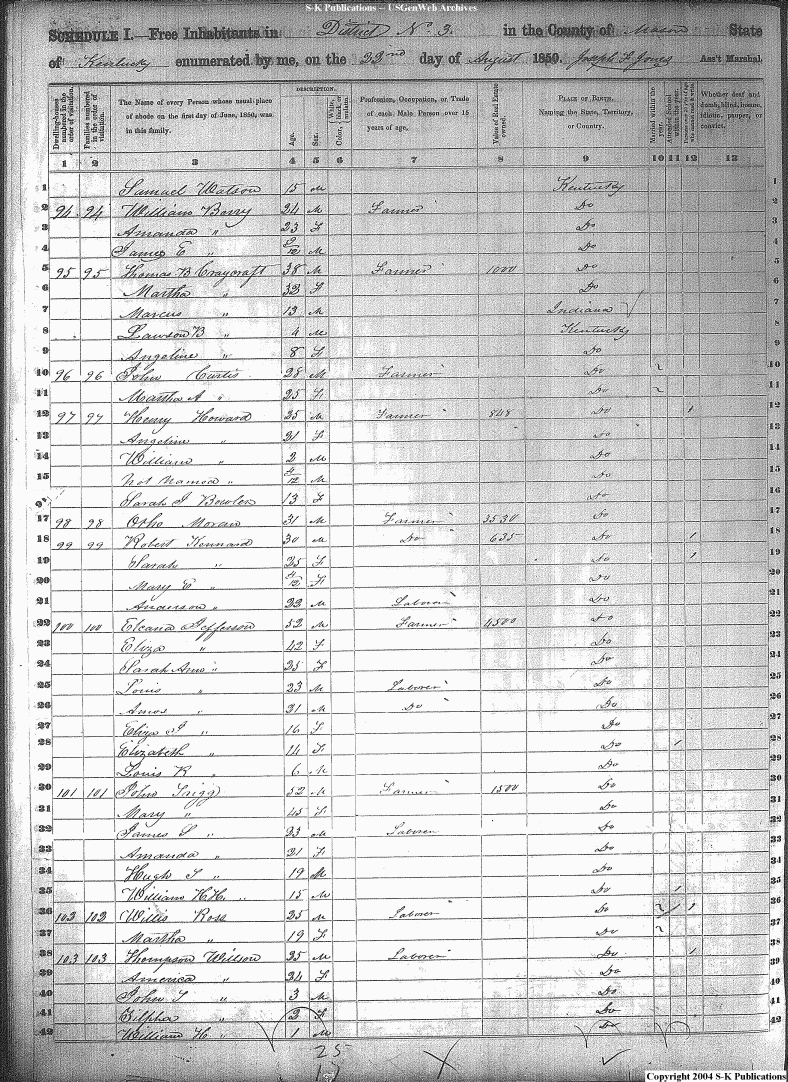 S-K Publications – USGenWeb Archives
SCHEDULE I.—Free Inhabitants in District No. 3. in the County of Mason State
of Kentucky enumerated by me, on the 22nd day of August 1850. Joseph F Jones Ass't Marshal.
Dwelling-houses numbered in the order of visitation.
Families numbered in the order of visitation.
The Name of every Person whose usual place of abode on the first day of June, 1850, was in this family.
DESCRIPTION.
Age.
Sex.
Color, {White, black, or mulatto.
Profession, Occupation, or Trade of each Male Person over 15 years of age.
Value of Real Estate owned.
PLACE OF BIRTH. Naming the State, Territory, or Country.
Married within the year.
Attended School within the year.
Whether deaf and dumb, blind, insane, idiotic, pauper, or convict.
1 2 3 4 5 6 7 8 9 10 11 12 13
1 Samuel Watson 15 M Kentucky 1
2 94 94 William Berry 24 M Farmer Do 2
3 Amanda " 23 F Do 3
4 James E " 9/12 M Do 4
5 95 95 Thomas B Craycraft 38 M Farmer 1000 Do 5
6 Martha " 32 F Do 6
7 Marcus " 13 M Indiana 7
8 Lawson B " 4 M Kentucky 8
9 Angeline " 8 F Do 9
10 96 96 John Curtis 28 M Farmer Do 10
11 Martha A " 25 F Do 11
12 97 97 Henry Howard 25 M Farmer 848 Do 1 12
13 Angeline " 21 F Do 13
14 William " 2 M Do 14
15 Not Named " 4/12 M Do 15
Sarah J Bowler 13 F Do 16
17 98 98 Otho Moran 31 M Farmer 3530 Do 17
18 99 99 Robert Kennard 30 M Do 635 Do 1 18
19 Sarah " 25 F Do 1 19
20 Mary E " /12 F Do 20
21 Anderson " 22 M Laborer Do 21
22 100 100 Elcana Jefferson 52 M Farmer 4500 Do 22
23 Eliza " 42 F Do 23
24 Sarah Ann " 25 F Do 24
25 Louis " 23 M Laborer Do 25
26 Amos " 21 M Do Do 26
27 Eliza J " 16 F Do 27
28 Elizabeth " 14 F Do 1 28
29 Louis R " 6 M Do 29
30 101 101 John Trigg 52 M Farmer 1500 Do 30
31 Mary " 45 F Do 31
32 James S " 23 M Laborer Do 32
33 Amanda " 21 F Do 33
34 Hugh T " 19 M Do 34
35 William H.H. " 15 M Do 1 35
36 102 102 Willis Ross 25 M Laborer Do 1 1 36
37 Martha " 19 F Do 37
38 103 103 Thompson Willson 25 M Laborer Do 1 38
39 America " 24 F Do 39
40 John T " 3 M Do 40
41 Zilpha " 2 F Do 41
42 William H. " 1 M Do 42
25
17
Copyright 2004 S-K Publications